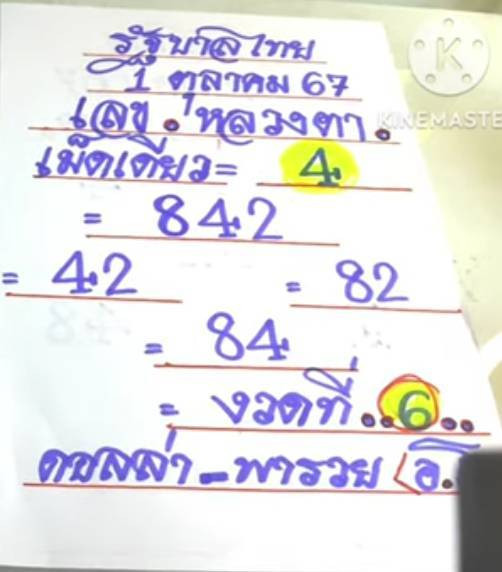 รัฐบาลไทย
1 ตุลาคม 67
เลข. หลวงตา.
เม็ดเดียว= 4
= 842
= 42 = 82
= 84
= งวดที่..6..
ดบลล่า - พารวย (อ.
K
KINEMASTE